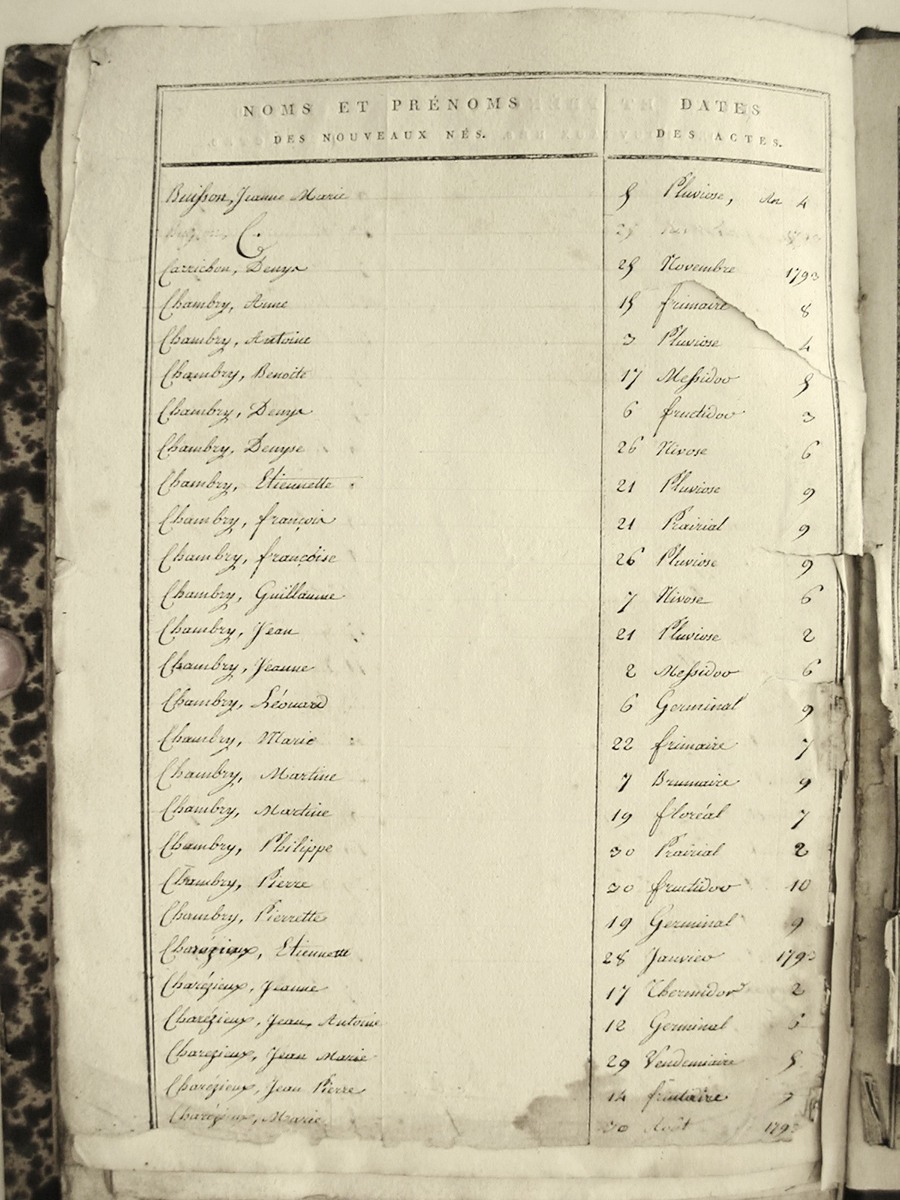 NOMS ET PRÉNOMS DES NOUVEAUX NÉS. DATES DES ACTES.
Buisson, Jeanne Marie 5 Pluviose, An 4
C.
Carrichon, Denys 25 Novembre 1793
Chambry, Anne 15 frimaire 8
Chambry, Antoine 3 Pluviose 4
Chambry, Benoite 17 Messidor 5
Chambry, Denys 6 fructidor 3
Chambry, Denyse 26 Nivose 6
Chambry, Etiennette 21 Pluviose 9
Chambry, françois 21 Prairial 9
Chambry, françoise 26 Pluviose 9
Chambry, Guillaume 7 Nivose 6
Chambry, Jean 21 Pluviose 2
Chambry, Jeanne 2 Messidor 6
Chambry, Léonard 6 Germinal 9
Chambry, Marie 22 frimaire 7
Chambry, Martine 7 Brumaire 9
Chambry, Martine 19 floréal 7
Chambry, Philippe 30 Prairial 2
Chambry, Pierre 30 fructidor 10
Chambry, Pierrette 19 Germinal 9
Charézieux, Etiennette 28 Janvier 1793
Charézieux, Jeanne 17 Thermidor 2
Charézieux, Jean Antoine 12 Germinal
Charezieux, Jean Marie 29 Vendemiaire 5
Charézieux, Jean Pierre 14 frimaire
Charézieux, Marie 30 Août